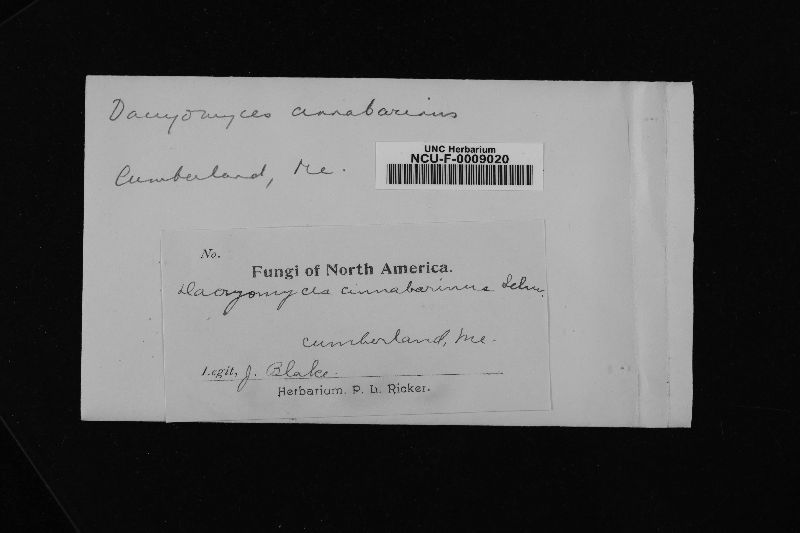 Dacryomyces cinnabarinus
UNC Herbarium
NCU-F-0009020
Cumberland, Me.
No.
Fungi of North America.
Dacryomyces cinnabarinus Schw.
Cumberland, Me.
Legit, J. Blake.
Herbarium. P. L. Ricker.